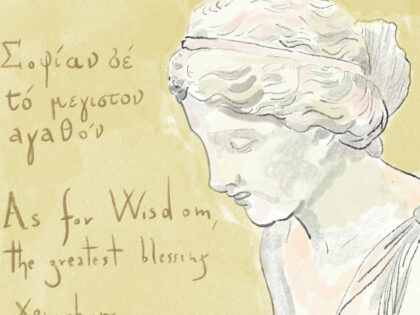 Σοφίαν δέ
τό μεγιστον
αγαθόν
As for Wisdom,
the greatest blessing